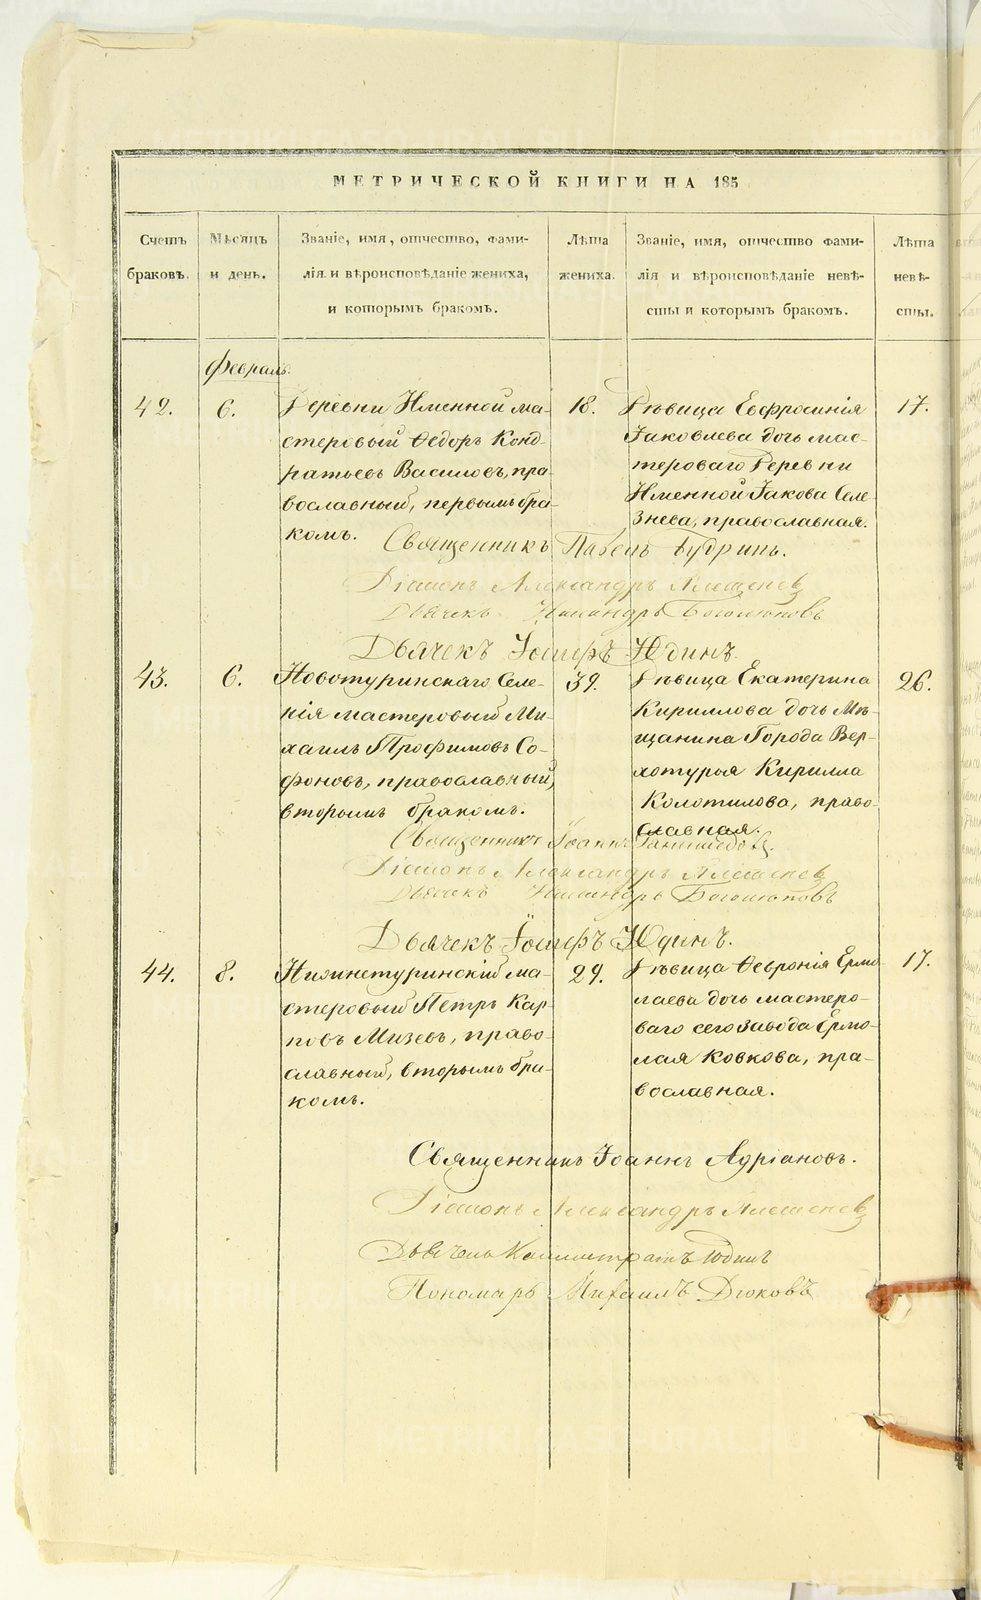 МЕТРИЧЕСКОЙ КНИГИ НА 185
Счетъ
браковъ.
Мѣсяцъ
и день.
Званіе, имя, отчество, фами-
лія и вѣроисповѣданіе жениха,
и которымъ бракомъ.
Лѣта
жениха.
Званіе, имя, отчество фами-
лія и вѣроисповѣданіе невѣ-
сты и которымъ бракомъ.
Лѣта
невѣ-
сты.
Февраль.
42.
6.
Деревни Именной ма-
стеровый Ѳедоръ Конд-
ратьевъ Василовъ, пра-
вославный, первымъ бра-
комъ.
18.
Дѣвица Евфросинія
Іаковлева дочь мас-
тероваго Деревни
Именной Іакова Селе-
знева, православная.
17.
Священникъ Павелъ Будринъ.
Діаконъ Александръ
Дьячекъ Никандръ Боголюповъ
Дьячекъ Іосифъ Юдинъ.
43.
6.
Новотуринскаго Селе-
нія мастеровый Ми-
хаилъ Трофимовъ Со-
фоновъ, православный,
вторымъ бракомъ.
39.
Дѣвица Екатерина
Кириллова дочь Мѣ-
щанина Города Вер-
хотурья Кирилла
Колотилова, право-
славная.
26.
Священникъ Іоаннъ
Діаконъ Александръ
Дьячекъ Никандръ Боголюповъ
Дьячекъ Іосифъ Юдинъ.
44.
8.
Нижнетуринскій ма-
стеровый Петръ Кар-
повъ Мизевъ, право-
славный, вторымъ бра-
комъ.
29.
Дѣвица Ѳевронія Ермо-
лаева дочь мастеро-
ваго сего завода Ермо-
лая Ковкова, пра-
вославная.
17.
Священникъ Іоаннъ Адріановъ.
Діаконъ Александръ
Дьячекъ Каллистратъ Юдинъ
Пономарь Михаилъ Дюковъ
METRIKI.GASO-URAL.RU